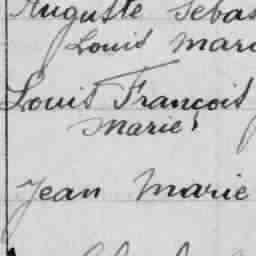 Auguste Sebas
Louis Mari
Louis François
Marie
Jean Marie